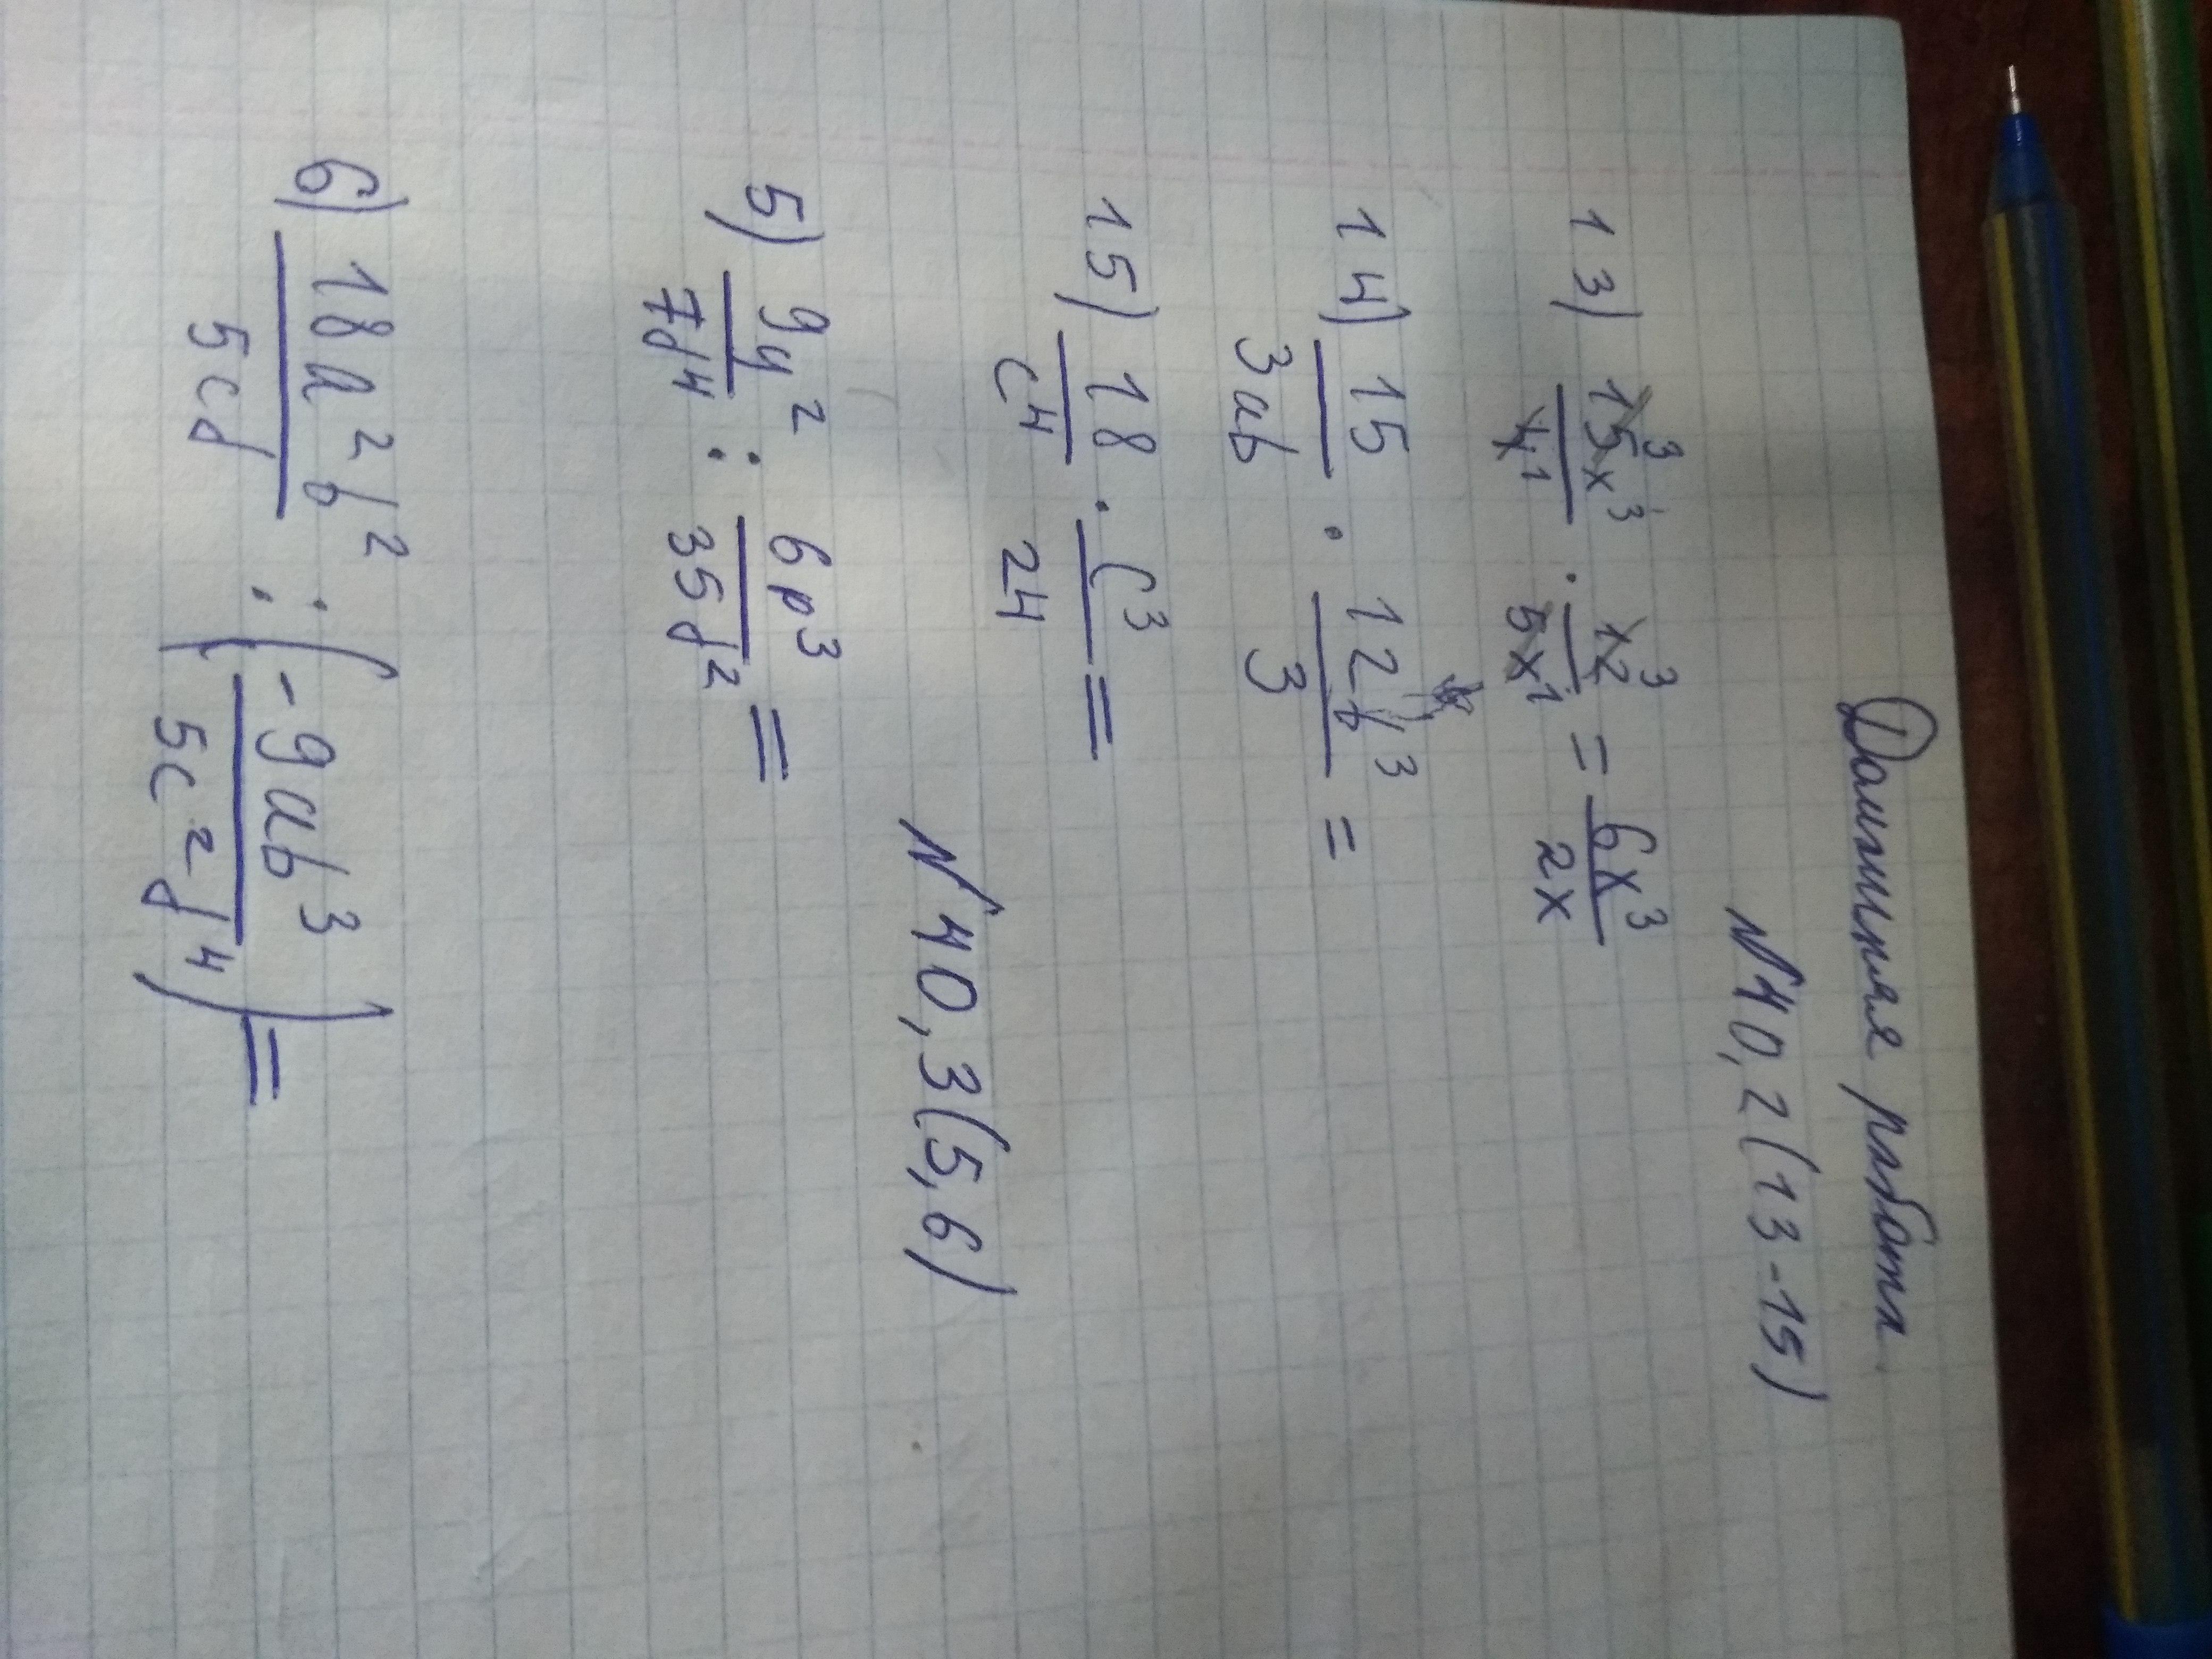 Домашняя работа.
№40,2(13-15)
13) 15x³/4 · x2/5x = 6x³/2x
14) 15/3ab · 12b³/3 =
15) 18/c⁴ · c³/24 =
№40,3(5,6)
5) 9y²/7d⁴ : 6p³/35d² =
6) 18a²b²/5cd : (-9ab³/5c²d⁴) =